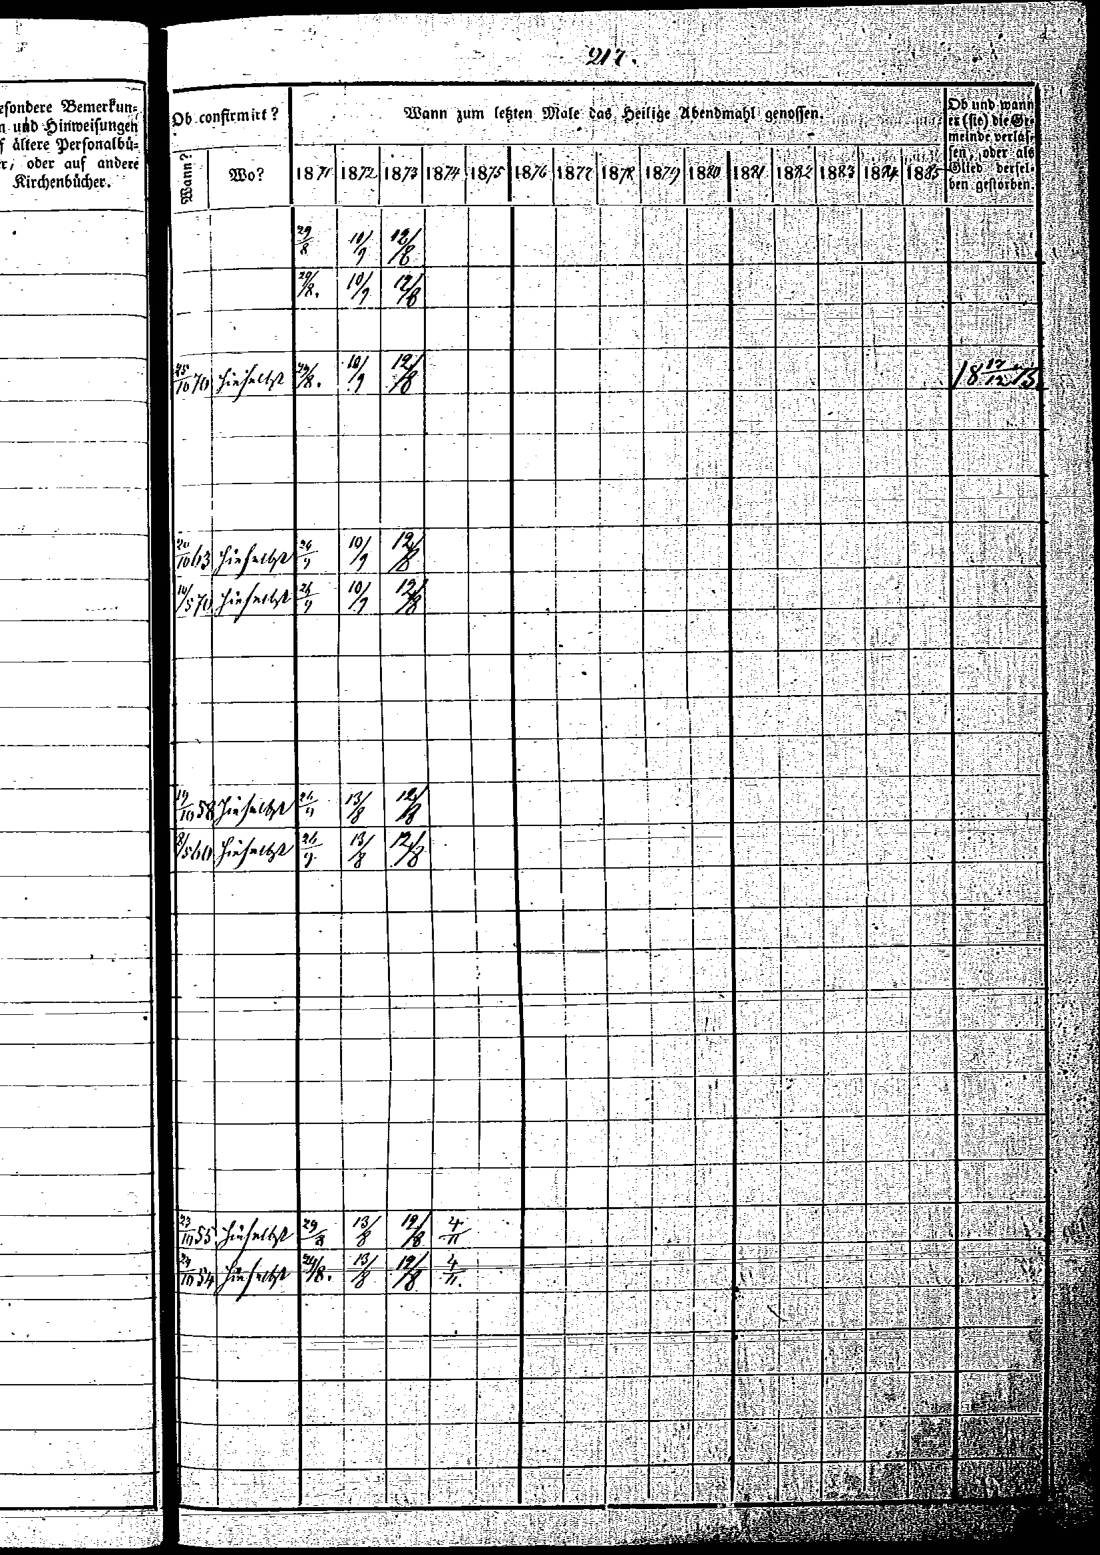 217.
esondere Bemerkun-
n und Hinweisungen
f ältere Personalbü-
er, oder auf andere
Kirchenbücher.
Ob confirmirt?
Wann?
Wo?
Wann zum letzten Male das Heilige Abendmahl genossen.
1871 1872 1873 1874 1875 1876 1877 1878 1879 1880 1881 1882 1883 1884 1885
Ob und wann
er (sie) die Ge-
meinde verlas-
sen, oder als
Glied dersel-
ben gestorben.
29/8 10/9 12/8
29/8. 10/9 12/8
25/10 70 hieselbst 29/8. 10/9 12/8 18 17/12 73
20/10 63 hieselbst 26/9 10/9 12/8
10/5 70 hieselbst 26/9 10/9 12/8
19/10 58 hieselbst 26/9 13/8 12/8
8/5 60 hieselbst 26/9 13/8 12/8
23/10 55 hieselbst 29/8 13/8 12/8 4/11
24/10 54 hieselbst 29/8. 13/8 12/8 4/11.